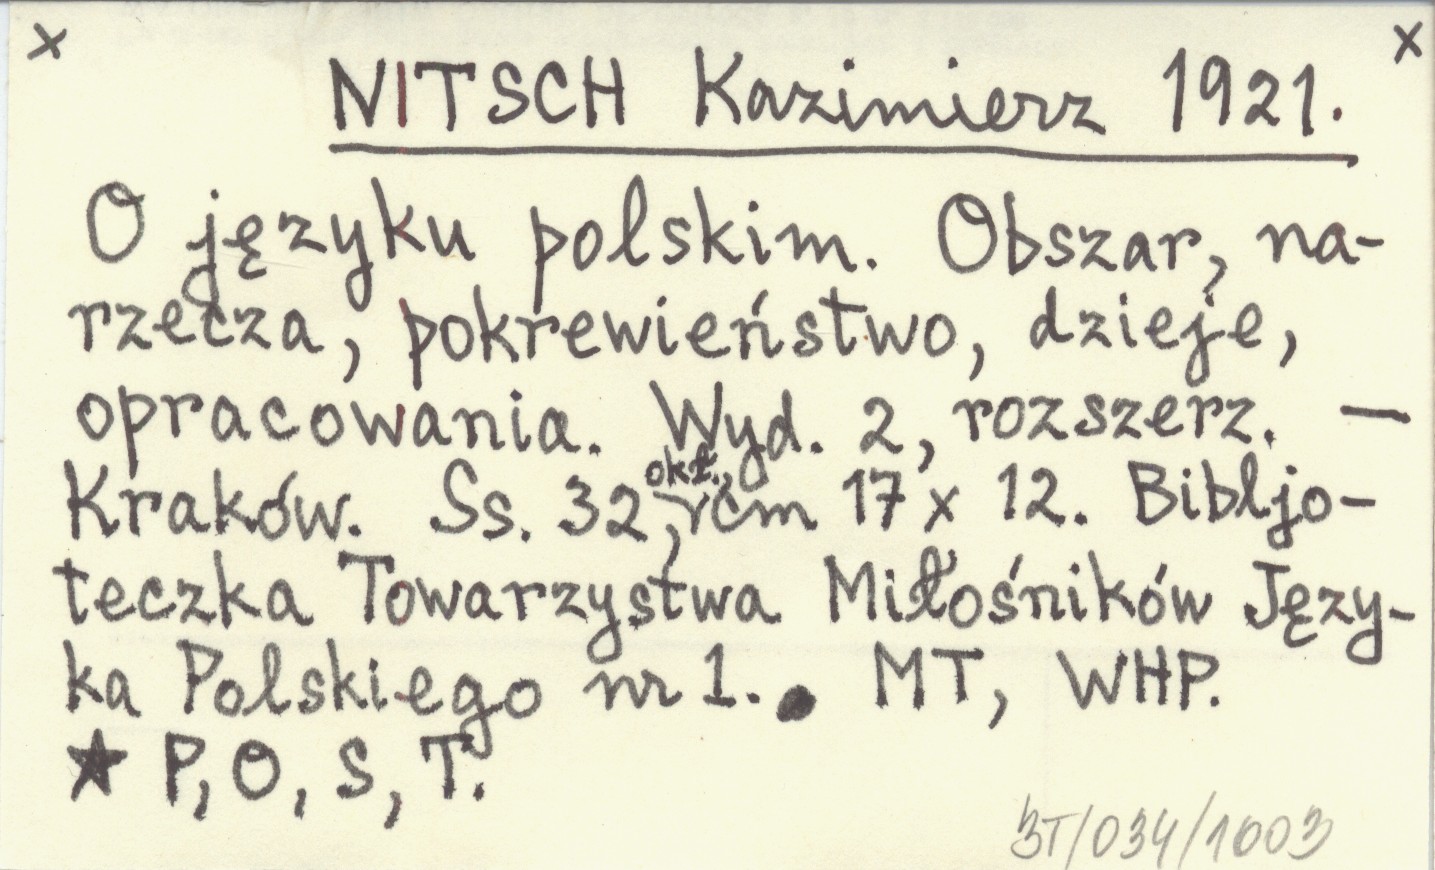 x x
NITSCH Kazimierz 1921.
O języku polskim. Obszar, na-
rzecza, pokrewieństwo, dzieje,
opracowania. Wyd. 2, rozszerz. —
Kraków. Ss. 32, okł., cm 17 x 12. Bibljo-
teczka Towarzystwa Miłośników Języ-
ka Polskiego nr 1. ● MT, WHP.
★ P, O, S, T.
3T/034/1003